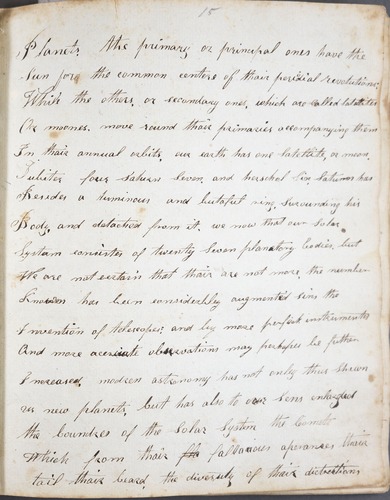 15
Planets, the primary or principal ones have the
Sun for the common centere of thair peridial revolutions;
While the others, or secondary ones, which are called
Or moones, move round thair primaries accompanying them
In thair annual orbits, our earth has one or moon,
four Saturn Seven, and herschel Six Saturns has
Besides a luminous and butaful ring, Surrounding his
Body, and detached from it. we now that our Solar
System consistes of twenty Seven planetory bodies, but
We are not certain that thair are not more, the number
has been considerbley augmented sins the
Invention of telescopes; and by more perfect instruments
And more observations may perhapes be further
Increased, modern astronomy has not only thus shewn
us new planets, but has also to our Sens enlarged
the boundres of the Solar System the Comets
Which from thair fallacious aperances thair
tail thair beard, the diversity of thair